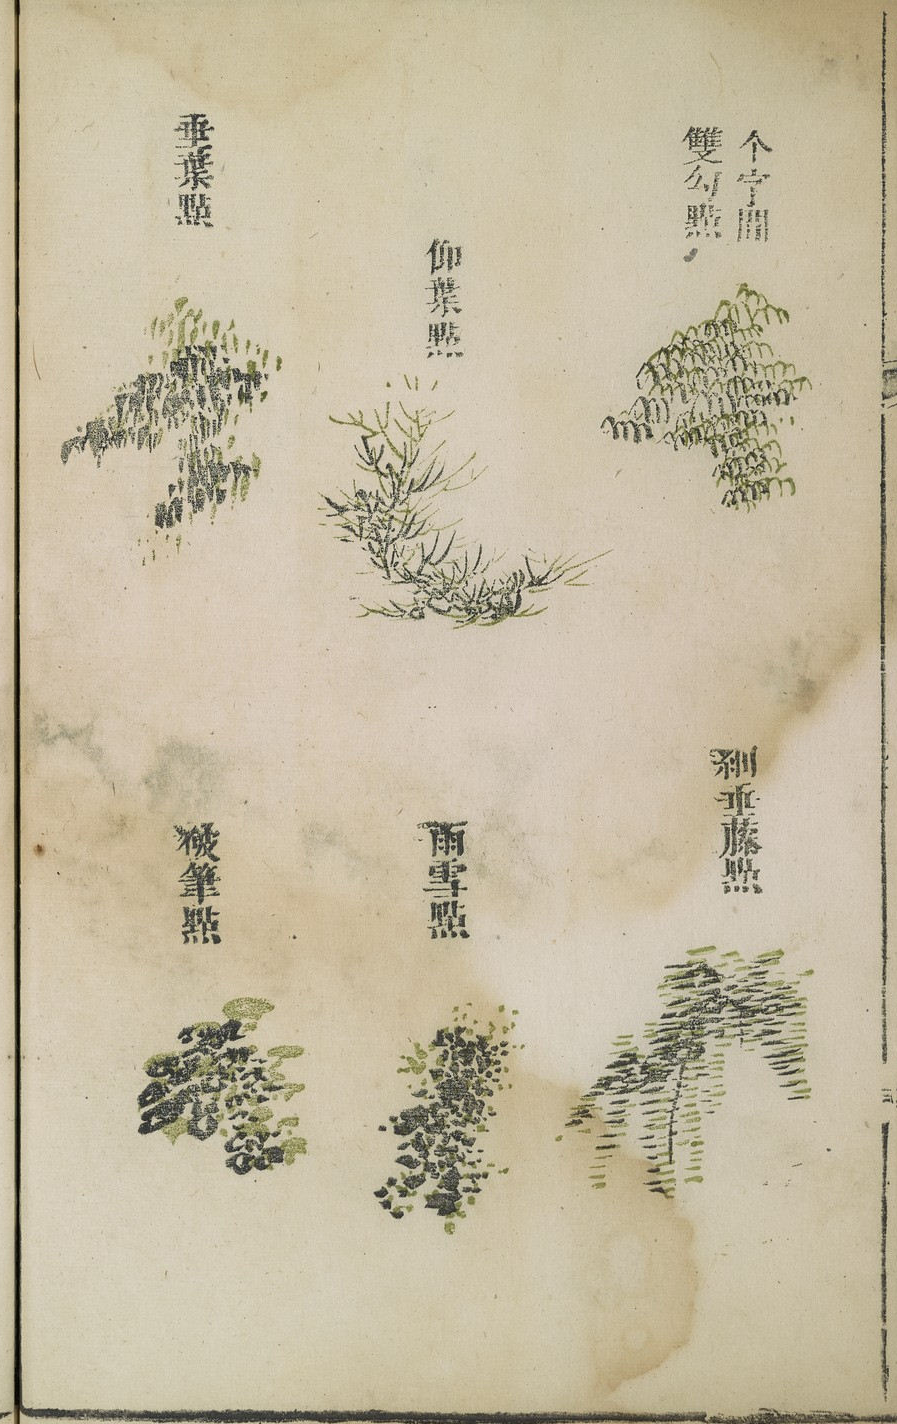 个字間
雙勾點
仰葉點
垂葉點
垂藤點
雨雪點
破筆點